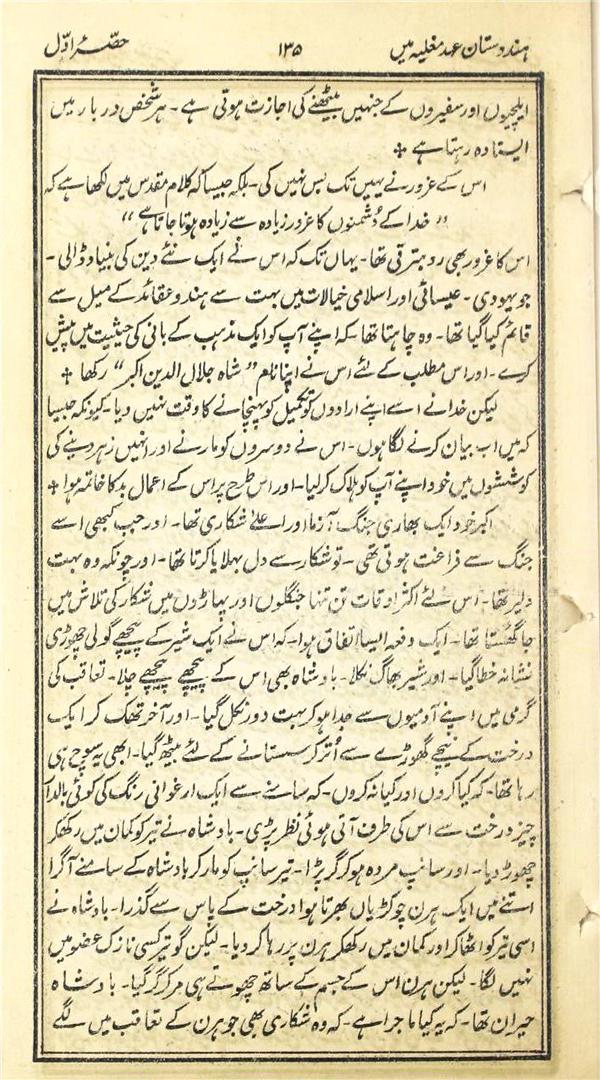 ہندوستان عہد مغلیہ میں ۱۳۵ حصّہ اوّل
ایلچیوں اور سفیروں کے جنہیں بیٹھنے کی اجازت ہوتی ہے۔ ہر شخص دربار میں
ایستادہ رہتا ہے ✢
اس کے غرور نے یہیں تک بس نہیں کی۔ بلکہ جیسا کہ کلام مقدس میں لکھا ہے کہ
”خدا کے دشمنوں کا غرور زیادہ سے زیادہ ہوتا جاتا ہے“
اس کا غرور بھی روبترقی تھا۔ یہاں تک کہ اس نے ایک نئے دین کی بنیاد ڈالی۔
جو یہودی۔ عیسائی اور اسلامی خیالات میں بہت سے ہندو عقائد کے میل سے
قائم کیا گیا تھا۔ وہ چاہتا تھا کہ اپنے آپ کو ایک مذہب کے بانی کی حیثیت میں پیش
کرے۔ اور اس مطلب کے لئے اس نے اپنا نام ”شاہ جلال الدین اکبر“ رکھا ✢
لیکن خدا نے اسے اپنے ارادوں کو تکمیل کو پہنچانے کا وقت نہیں دیا۔ کیونکہ جیسا
کہ میں اب بیان کرنے لگا ہوں۔ اس نے دوسروں کو مارنے اور انہیں زہر دینے کی
کوششوں میں خود اپنے آپ کو ہلاک کر لیا۔ اور اس طرح پر اس کے اعمال بد کا خاتمہ ہوا ✢
اکبر خود ایک بھاری جنگ آزما اور اعلےٰ شکاری تھا۔ اور جب کبھی اسے
جنگ سے فراغت ہوتی تھی۔ تو شکار سے دل بہلایا کرتا تھا۔ اور چونکہ وہ بہت
دلیر تھا۔ اس لئے اکثر اوقات تن تنہا جنگلوں اور پہاڑوں میں شکار کی تلاش میں
جا گھستا تھا۔ ایک دفعہ ایسا اتفاق ہوا۔ کہ اس نے ایک شیر کے پیچھے گولی چھوڑی
نشانہ خطا گیا۔ اور شیر بھاگ نکلا۔ بادشاہ بھی اس کے پیچھے پیچھے چلا۔ تعاقب کی
گرمی میں اپنے آدمیوں سے جدا ہو کر بہت دور نکل گیا۔ اور آخر تھک کر ایک
درخت کے نیچے گھوڑے سے اُتر کر سستانے کے لئے بیٹھ گیا۔ ابھی یہ سوچ ہی
رہا تھا۔ کہ کیا کروں اور کیا نہ کروں۔ کہ سامنے سے ایک ارغوانی رنگ کی کوئی بالدار
چیز درخت سے اس کی طرف آتی ہوئی نظر پڑی۔ بادشاہ نے تیر کو کمان میں رکھکر
چھوڑ دیا۔ اور سانپ مردہ ہو کر گر پڑا۔ تیر سانپ کو مار کر بادشاہ کے سامنے آگرا
اتنے میں ایک ہرن چوکڑیاں بھرتا ہوا درخت کے پاس سے گذرا۔ بادشاہ نے
اسی تیر کو اٹھا کر اور کمان میں رکھکر ہرن پر رہا کر دیا۔ لیکن گو تیر کسی نازک عضو میں
نہیں لگا۔ لیکن ہرن اس کے جسم کے ساتھ چھوتے ہی مر کر گر گیا۔ بادشاہ
حیران تھا۔ کہ یہ کیا ماجرا ہے۔ کہ وہ شکاری بھی جو ہرن کے تعاقب میں لگے